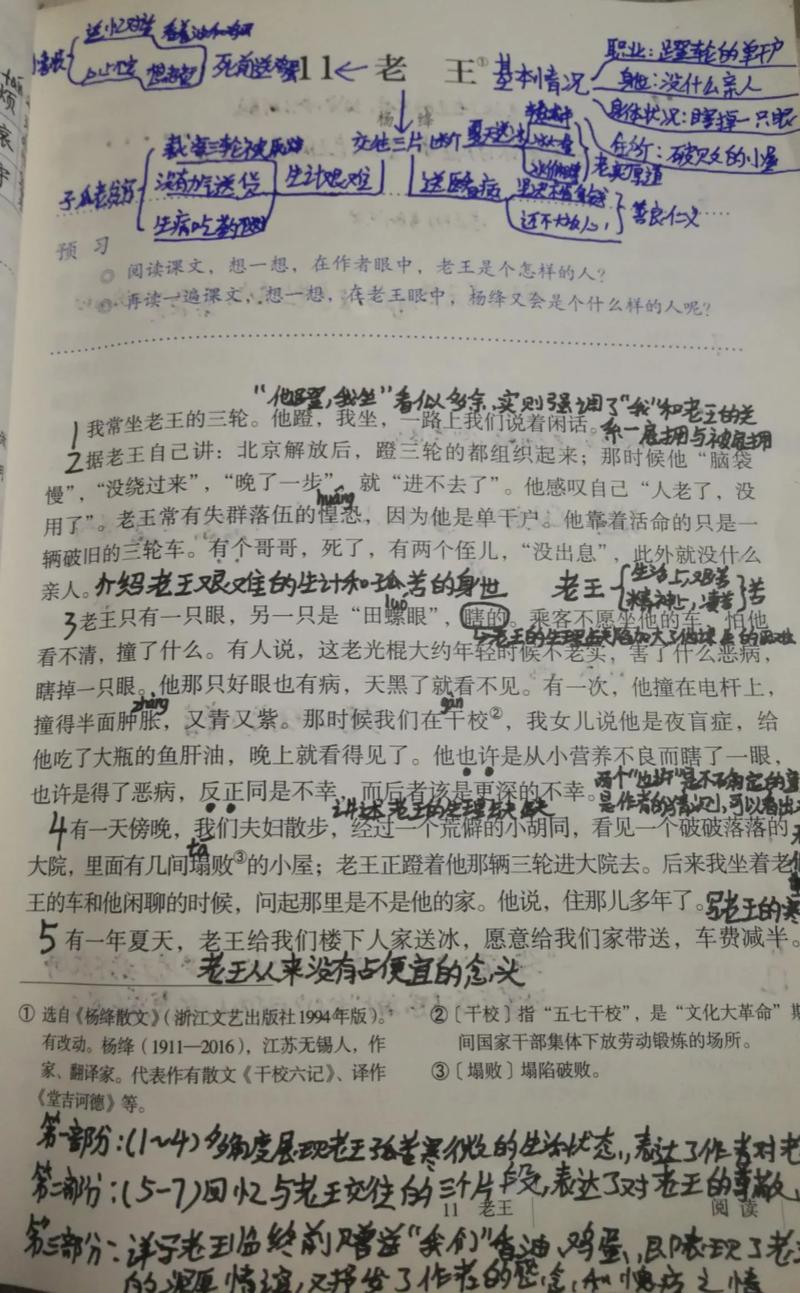 送 香油和鸡蛋
死前送 11 ← 老 王① 基本情况
职业：蹬三轮的单干户
身世：没什么亲人
身体状况：瞎掉一只眼
住所：破败的小屋
杨 绛
载 三轮被 交往三片断 夏天送冰 老实厚道
没有力气送货 生计艰难 送 病
生病吃 善良仁义
预 习
阅读课文，想一想，在作者眼中，老王是个怎样的人？
再读一遍课文，想一想，在老王眼中，杨绛又会是个什么样的人呢？
“他蹬，我坐”看似多余，实则强调了“我”和老王的关
系—雇拥与被雇拥
1我常坐老王的三轮。他蹬，我坐，一路上我们说着闲话。
2据老王自己讲：北京解放后，蹬三轮的都组织起来；那时候他“脑袋
慢”，“没绕过来”，“晚了一步”，就“进不去了”。他感叹自己“人老了，没
huáng
用了”。老王常有失群落伍的惶恐，因为他是单干户。他靠着活命的只是一
辆破旧的三轮车。有个哥哥，死了，有两个侄儿，“没出息”，此外就没什么
亲人。介绍老王艰难的生计和孤苦的身世 老王{生活上，艰苦 精神上，凄苦}苦
luó
3老王只有一只眼，另一只是“田螺眼”，瞎的。乘客不愿坐他的车，怕他
老王的生理缺陷加大了他谋生的困难
看不清，撞了什么。有人说，这老光棍大约年轻时候不老实，害了什么恶病，
瞎掉一只眼。他那只好眼也有病，天黑了就看不见。有一次，他撞在电杆上，
zhàng gàn
撞得半面肿胀，又青又紫。那时候我们在干校②，我女儿说他是夜盲症，给
他吃了大瓶的鱼肝油，晚上就看得见了。他也许是从小营养不良而瞎了一眼，
也许是得了恶病，反正同是不幸，而后者该是更深的不幸。两个“也许”是不确定的
是作者的猜测，可以看出
讲述老王的生理缺陷
4有一天傍晚，我们夫妇散步，经过一个荒僻的小胡同，看见一个破破落落的
tā
大院，里面有几间塌败③的小屋；老王正蹬着他那辆三轮进大院去。后来我坐着老
王的车和他闲聊的时候，问起那里是不是他的家。他说，住那儿多年了。写老王的寒
5有一年夏天，老王给我们楼下人家送冰，愿意给我们家带送，车费减半。
老王从来没有占便宜的念头
① 选自《杨绛散文》（浙江文艺出版社1994年版）。
有改动。杨绛（1911—2016），江苏无锡人，作
家、翻译家。代表作有散文《干校六记》、译作
《堂吉诃德》等。
②〔干校〕指“五七干校”，是“文化大革命”期
间国家干部集体下放劳动锻炼的场所。
③〔塌败〕塌陷破败。
第一部分：(1~4)多角度展现老王孤苦寒微的生活状态，表达了作者对老
第二部分：(5-7)回忆与老王交往的三个片段，表达了对老王的尊敬
11 老王 阅 读
第三部分：详写老王临终前赠送“我们”香油、鸡蛋，即表现了老王
的深厚情谊，又抒发了作者的 念和愧疚之情